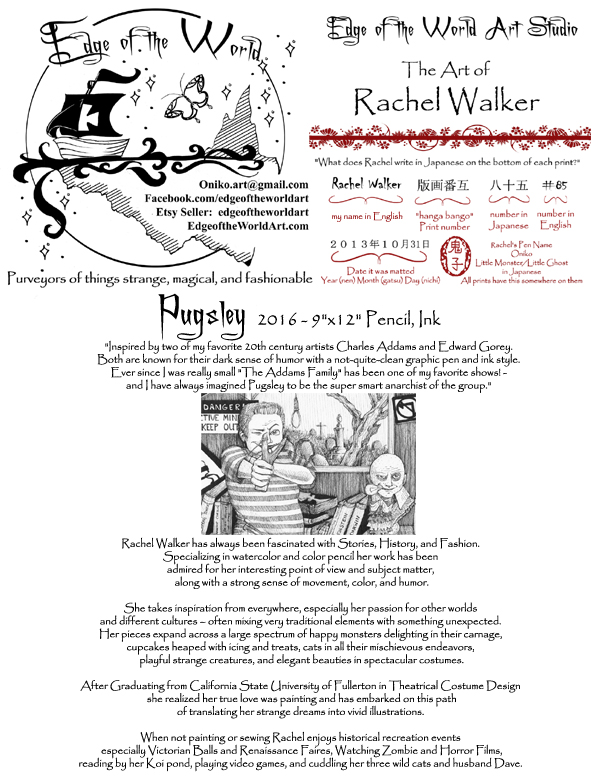 Edge of the World
Oniko.art@gmail.com
Facebook.com/edgeoftheworldart
Etsy Seller: edgeoftheworldart
EdgeoftheWorldArt.com
Purveyors of things strange, magical, and fashionable
Edge of the World Art Studio
The Art of
Rachel Walker
"What does Rachel write in Japanese on the bottom of each print?"
Rachel Walker
my name in English
版画番互
"hanga bango"
Print number
八十五
number in
Japanese
#85
number in
English
2013年10月31日
Date it was matted
Year (nen) Month (gatsu) Day (nichi)
鬼子
Rachel's Pen Name
Oniko
Little Monster/Little Ghost
in Japanese
All prints have this somewhere on them
Pugsley 2016 - 9"x12" Pencil, Ink
"Inspired by two of my favorite 20th century artists Charles Addams and Edward Gorey.
Both are known for their dark sense of humor with a not-quite-clean graphic pen and ink style.
Ever since I was really small "The Addams Family" has been one of my favorite shows! -
and I have always imagined Pugsley to be the super smart anarchist of the group."
DANGER
KEEP OUT
Rachel Walker has always been fascinated with Stories, History, and Fashion.
Specializing in watercolor and color pencil her work has been
admired for her interesting point of view and subject matter,
along with a strong sense of movement, color, and humor.
She takes inspiration from everywhere, especially her passion for other worlds
and different cultures – often mixing very traditional elements with something unexpected.
Her pieces expand across a large spectrum of happy monsters delighting in their carnage,
cupcakes heaped with icing and treats, cats in all their mischievous endeavors,
playful strange creatures, and elegant beauties in spectacular costumes.
After Graduating from California State University of Fullerton in Theatrical Costume Design
she realized her true love was painting and has embarked on this path
of translating her strange dreams into vivid illustrations.
When not painting or sewing Rachel enjoys historical recreation events
especially Victorian Balls and Renaissance Faires, Watching Zombie and Horror Films,
reading by her Koi pond, playing video games, and cuddling her three wild cats and husband Dave.